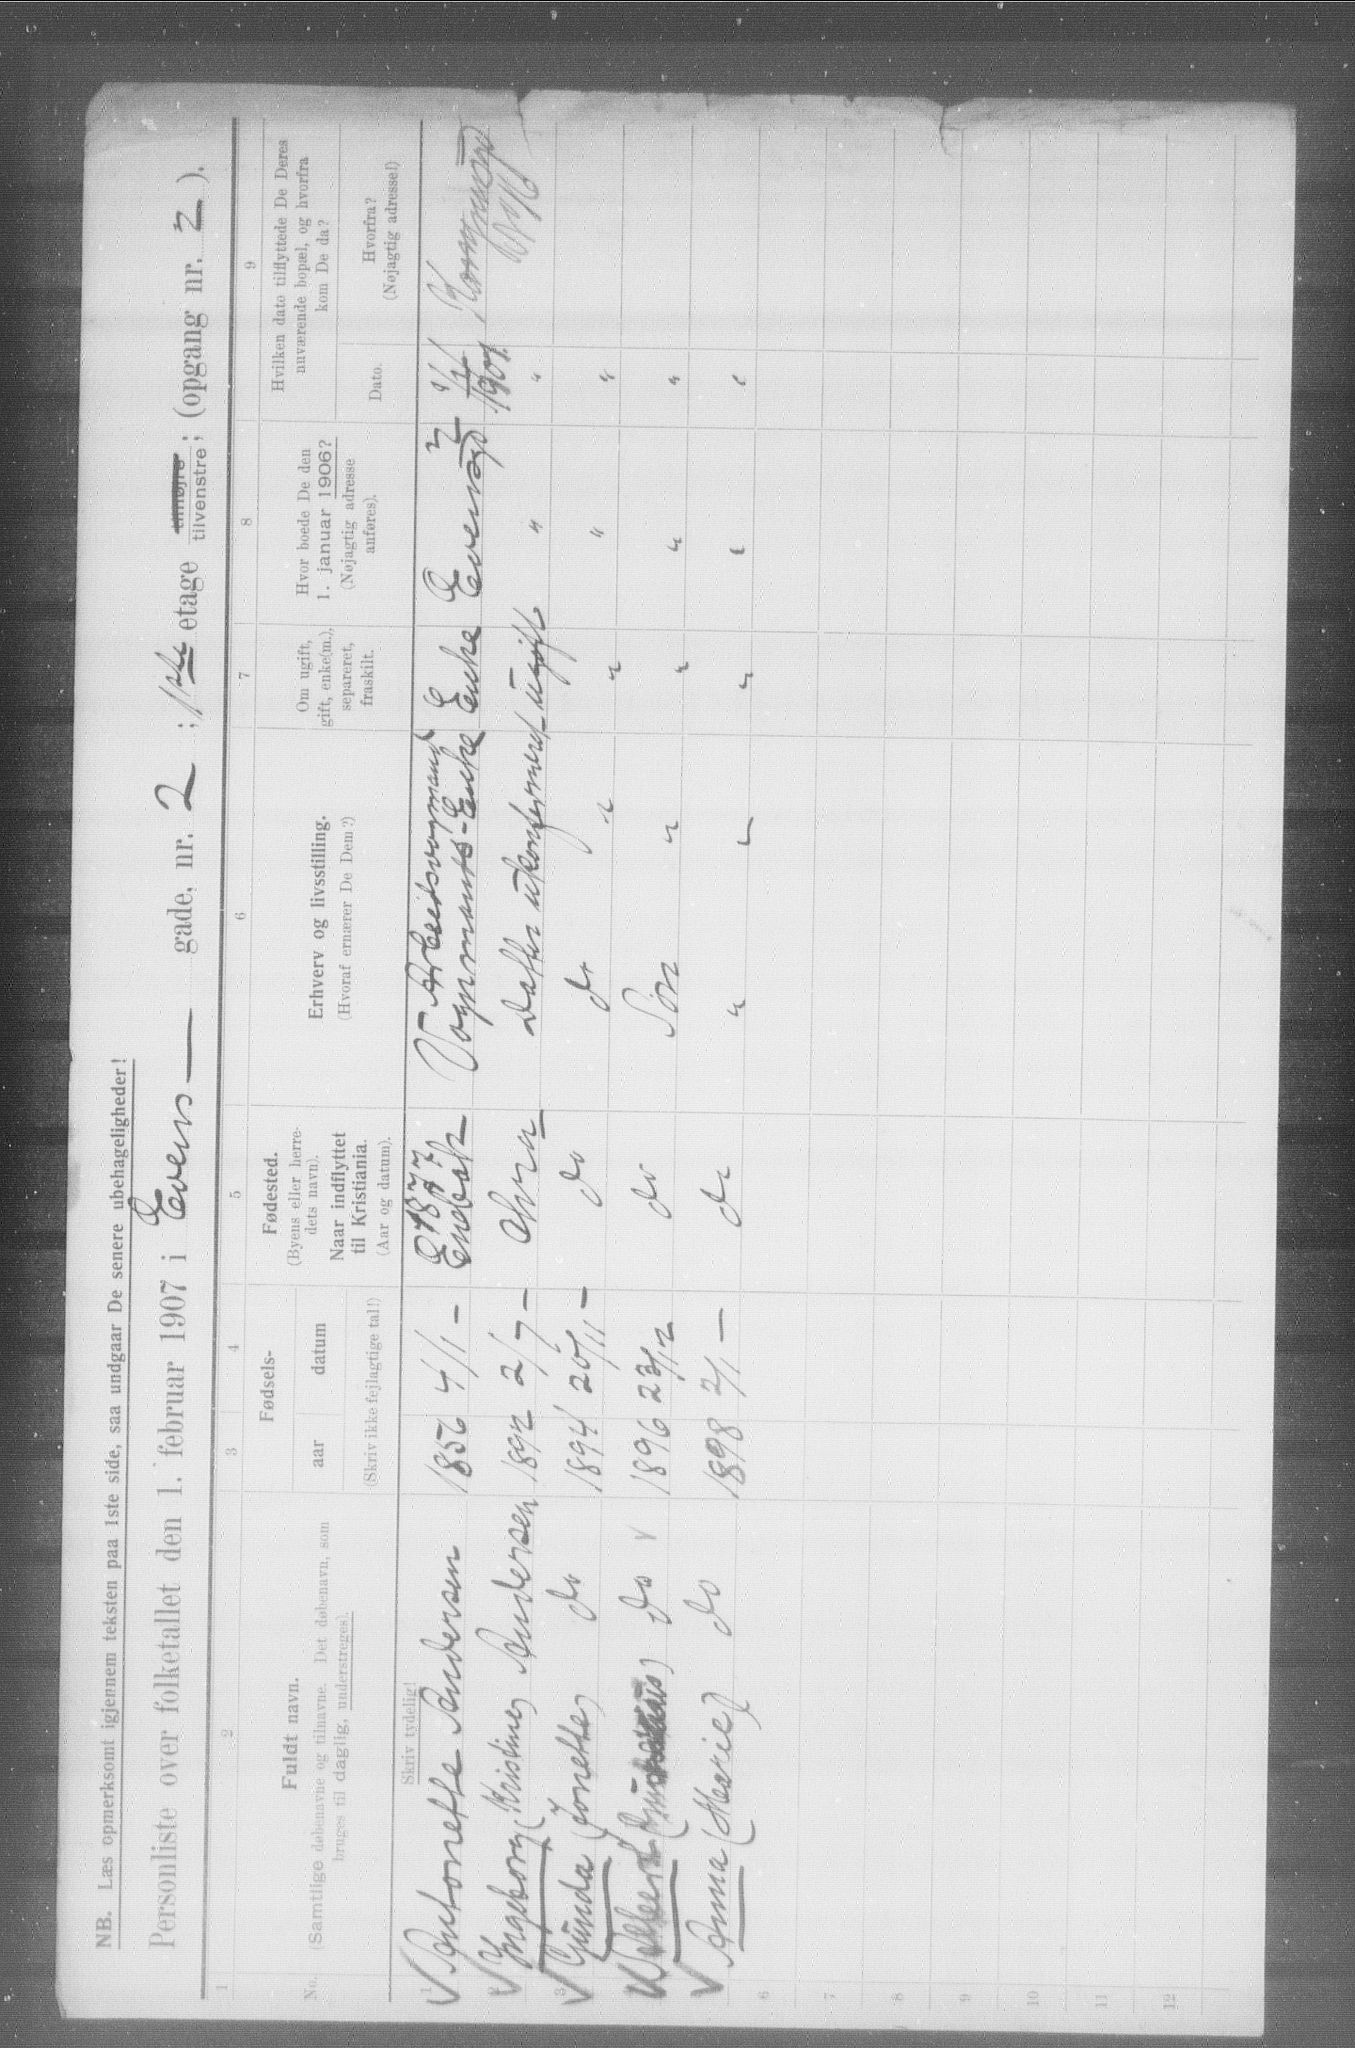 NB. Læs opmerksomt igjennem teksten paa 1ste side, saa undgaar De senere ubehageligheder!
Personliste over folketallet den 1. februar 1907 i Evens — gade, nr. 2 ; 1ste etage tilhøjre tilvenstre; (opgang nr. 2).
1 2 3 4 5 6 7 8 9
No.
Fuldt navn.
(Samtlige døbenavne og tilnavne. Det døbenavn, som
bruges til daglig, understreges).
Skriv tydelig!
Fødsels-
aar datum
(Skriv ikke fejlagtige tal!)
Fødested.
(Byens eller herre-
dets navn).
Naar indflyttet
til Kristiania.
(Aar og datum).
Erhverv og livsstilling.
(Hvoraf ernærer De Dem?)
Om ugift,
gift, enke(m.),
separeret,
fraskilt.
Hvor boede De den
1. januar 1906?
(Nøjagtig adresse
anføres).
Hvilken dato tilflyttede De Deres
nuværende bopæl, og hvorfra
kom De da?
Dato.
Hvorfra?
(Nøjagtig adresse!)
1 Antonette Andersen 1856 4/1 — 1877 Enebak Arbeidsvognmand Vognmands-Enke E Enke Evensgd 2 1901
2 Ingeborg (Kristine) Andersen 1892 2/7 — Chra Datter ukonfirmeret ugift " "
3 Gunda (Jonette) do 1894 20/11 — do do " " " "
do 1896 23/12 do Søn " " " "
Anna (Marie) do 1898 2/1 — do " " " " "
6
7
8
9
10
11
12